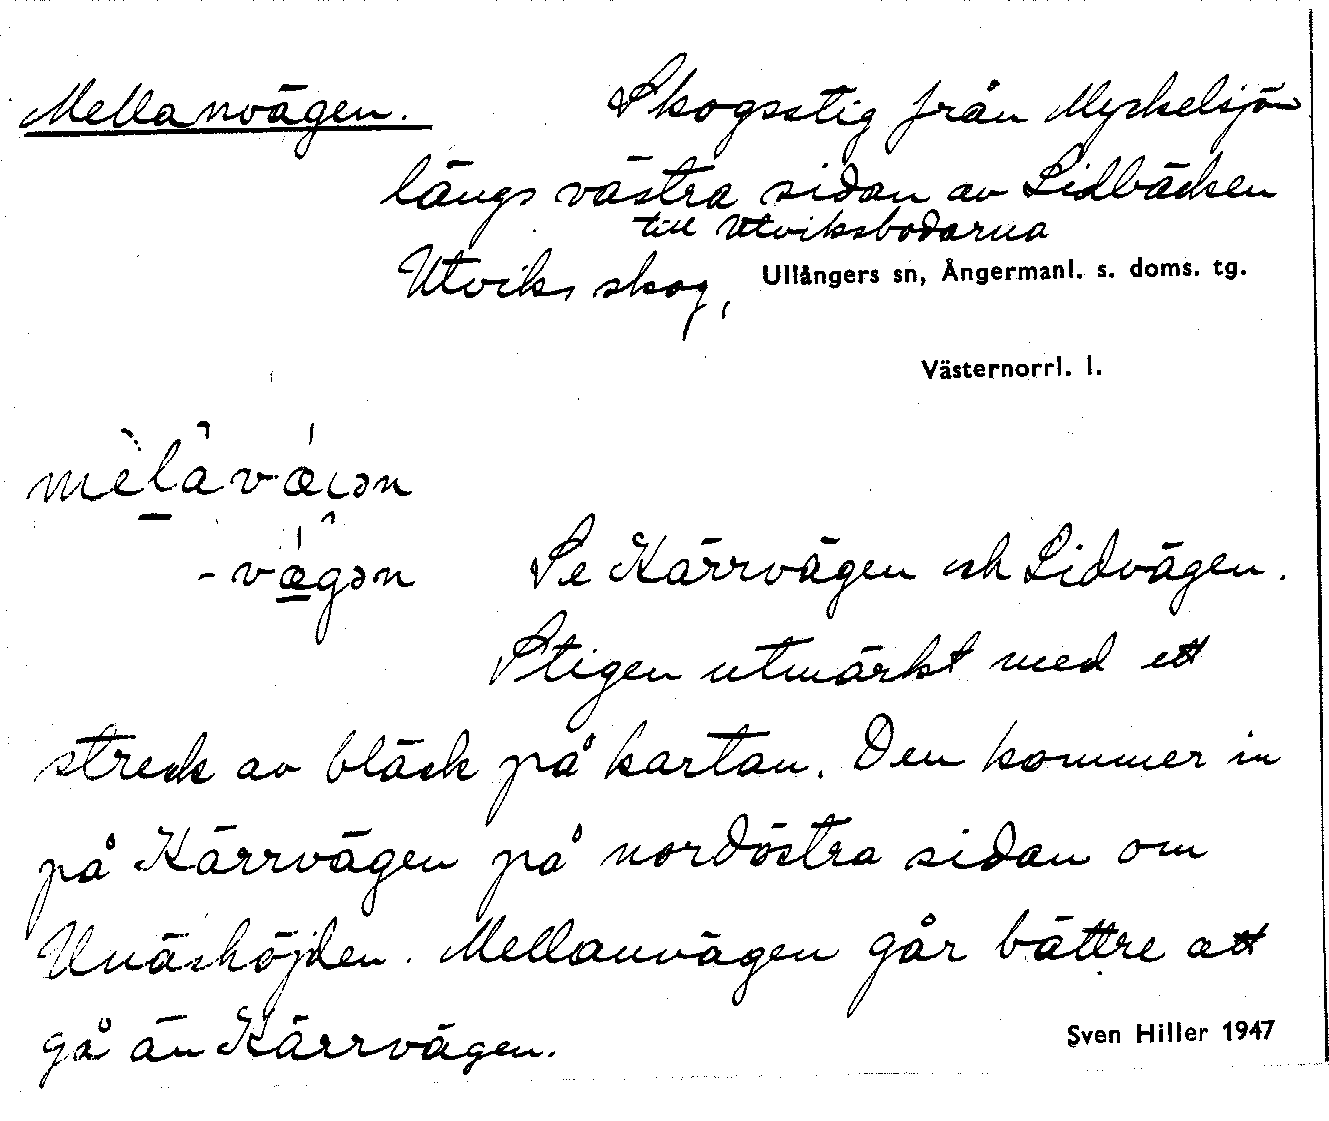 Mellanvägen. Skogsstig från Myckelsjön
längs västra sidan av Lidbäcken
till Utviksbodarna
Utviks skog, Ullångers sn, Ångermanl. s. doms. tg.
Västernorrl. l.
-vǽgən Se Kärrvägen och Lidvägen.
Stigen utmärkt med ett
streck av bläck på kartan. Den kommer in
på Kärrvägen på nordöstra sidan om
Unäshöjden. Mellanvägen går bättre att
gå än Kärrvägen. Sven Hiller 1947